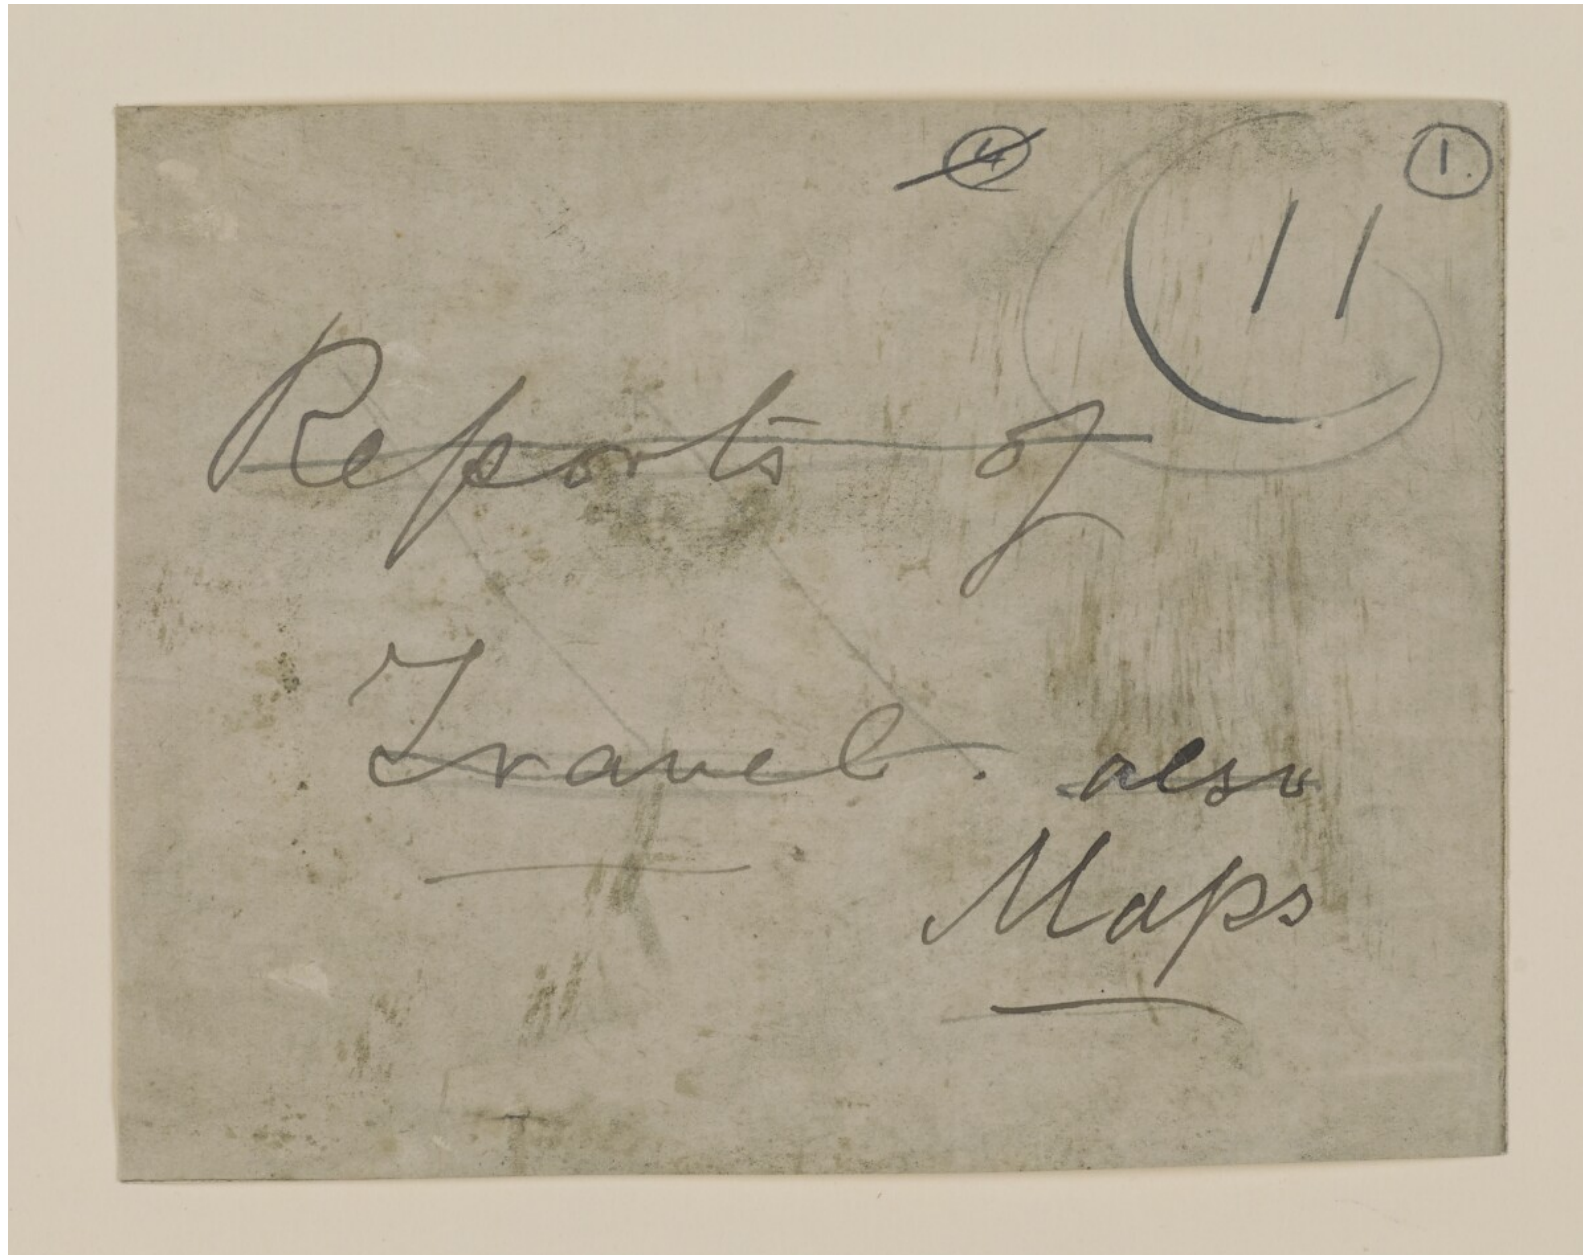 4 1
11
Reports of
Travel. also
Maps